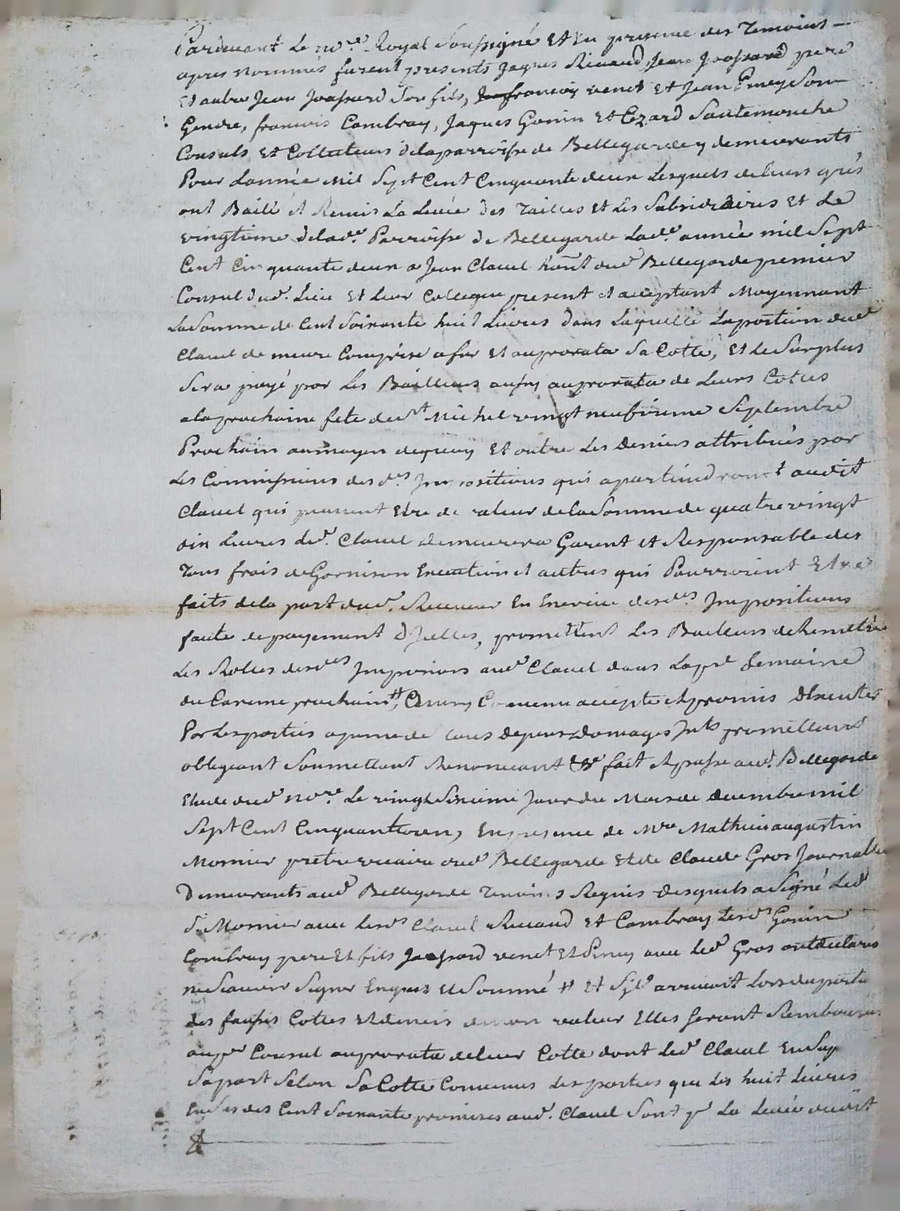 Pardevant Le no.re Royal Soussigné Et En presence des Temoins
apres nommés furent presents Jaques Renaud, Jean Joassard pere
Et autre Jean Joassard Son fils, francois venet Et Jean Son
Gendre, francois Combray, Jaques Gonin Et Cezard Sautemouche
Consuls Et Collecteurs d'elaparroisse de Bellegarde y demeurants
Pour L'année Mil Sept Cent Cinquante deux Lesquels de leurs grés
ont Baillé et Remis La Levée des Tailles Et Les Subsidiaires Et Le
vingtieme delad.e Parroisse de Bellegarde Lad.e année mil Sept
Cent Cinquante deux a Jean Claud hant dud Bellegarde premier
Consul dud. Lieu Et Leur Collegue present et aceptant Moyennant
La Somme de Cent Soixante huit Livres dans Laquelle La portion dud
Claud de meure Comprise Et auprorata Sa Cotte, Et Le Surplus
Sera payé par Les Bailleurs auprorata de Leurs Cottes
ala prochaine fete de St Michel vingt neufvieme Septembre
Prochain aumoyen dequoy Et outre Les Deniers attribués par
Les Commissions des d.es Impositions qui apartiendront audit
Claud qui peuvent Etre de valeur de La Somme de quatre vingt
dix Livres Led. Claud demeurera Garent Et Responsable des
Tous frais de Garnison Execution et autres qui Pourroient Etre
faits dela part dud. Receveur En Exercice desd.es Impositions
faute depayement d'Jcelles, promettent Les Bailleurs de Remettre
Les Rolles desd.es Impositions aud Claud dans La pre Semaine
du Careme prochain, Convenu accepté et promis d'Executer
Par Les parties apeine de tous depens Domages Jnts promettant
obligeant Soumettant Renonceant &c fait et passé aud. Bellegarde
Etude dud no.re Le vingt Sixieme Jour du Mois de decembre mil
Sept Cent Cinquante, En presence de M.re Mathieu augustin
Mornier pretre vicaire dud Bellegarde Et de Claude Gros Journallier
Demeurants aud Bellegarde Temoins Requis desquels a Signé Led
S.r Mornier avec Lesd.s Claud Renaud Et Combray Lesd.s Gonin
Combray pere Et fils Joassard venet Et avec Led Gros ont declarés
ne Scavoir Signer Enquis Et Sommé # Et S'Jl arrivoit Lors
des fausses Cottes Et deniers de non valeur Elles Seront Remboursés
aup.r Consul auprorata deleur Cotte dont Led Claud En Sup.
Sapart Selon Sa Cotte Convenus Les parties que Les huit Livres
En Sus des Cent Soixante promises aud. Claud Sont p.r La Levée dudit